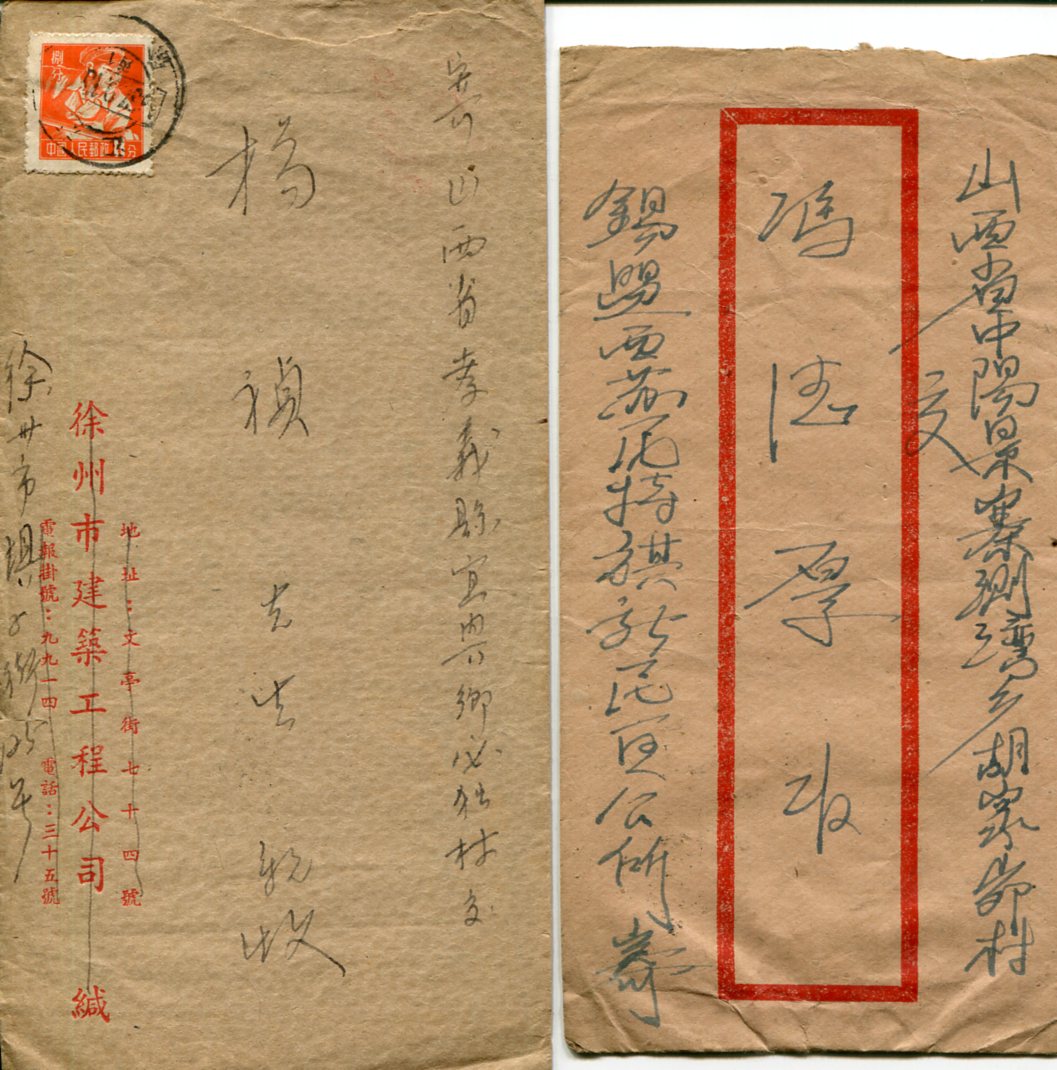 捌分
中国人民郵政
寄山西省孝義縣宜興鄉必独村交
楊禎吉先生親收
地址：文亭街七十四號
徐州市建築工程公司 緘
電報掛號：九九一四 電話：三十五號
徐州市
山西省中陽县寨
胡家峁村
交
馮德厚收
錫盟西苏尼特旗
公所寄